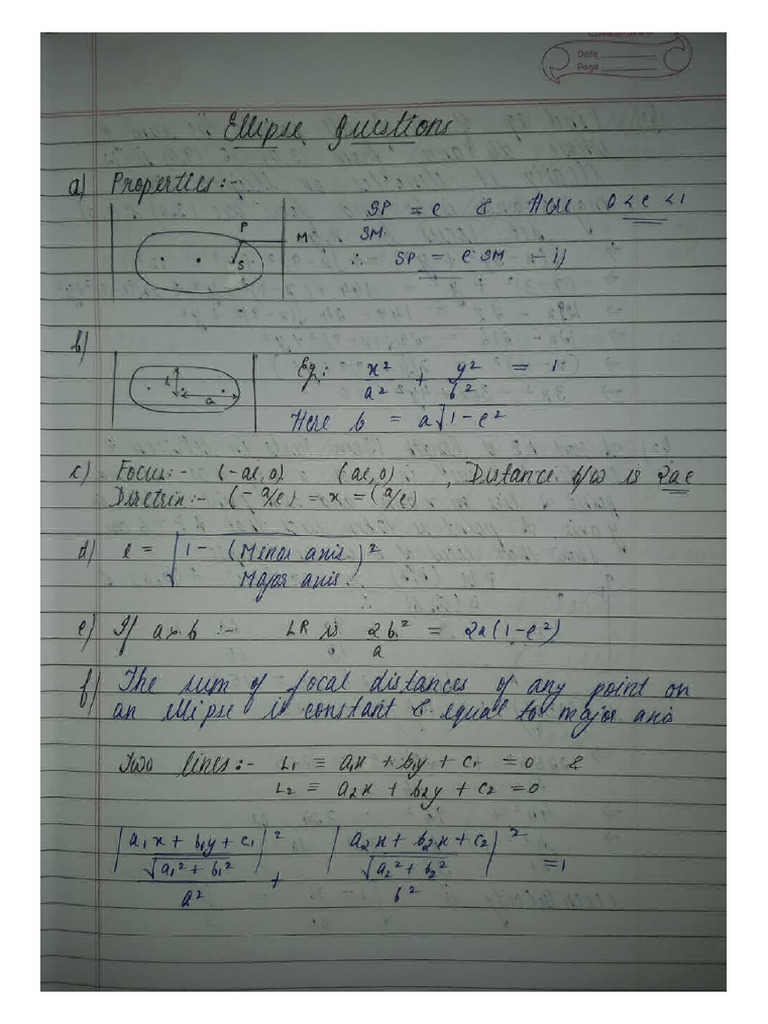 Date
Page
Ellipse Questions
a) Properties:-
SP = e & Here 0 < e < 1
SM
∴ SP = e SM - i)
P
M
S
b)
Eg: x²/a² + y²/b² = 1
b
a
Here b = a√1-e²
c) Focus:- (-ae, 0) (ae, 0) , Distance b/w is 2ae
Directrix:- (-a/e) = x = (a/e)
d) e = √1 - (Minor axis / Major axis)²
e) If a > b :- LR is 2b²/a = 2a(1-e²)
f) The sum of focal distances of any point on
an ellipse is constant & equal to major axis
Two lines:- L₁ ≡ a₁x + b₁y + c₁ = 0 &
L₂ ≡ a₂x + b₂y + c₂ = 0
|a₁x + b₁y + c₁ / √a₁² + b₁²|² / a² + |a₂x + b₂x + c₂ / √a₂² + b₂²|² / b² = 1